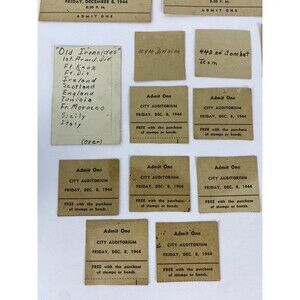 FRIDAY, DECEMBER 8, 1944
8:30 P. M.
ADMIT ONE
8:30 P. M.
ADMIT ONE
"Old Ironsides"
1st. Arm'd. div.
Ft. Knox
Ft. Dix
Ireland
Scotland
England
Tunisia
Fr. Morocco
Sicily
Italy
(over)
Division
442nd Combat
Team
Admit One
CITY AUDITORIUM
FRIDAY, DEC. 8, 1944
FREE with the purchase
of stamps or bonds.
Admit One
CITY AUDITORIUM
FRIDAY, DEC. 8, 1944
FREE with the purchase
of stamps or bonds.
Admit One
CITY AUDITORIUM
FRIDAY, DEC. 8, 1944
FREE with the purchase
of stamps or bonds.
Admit One
CITY AUDITORIUM
FRIDAY, DEC. 8, 1944
FREE with the purchase
of stamps or bonds.
Admit One
CITY AUDITORIUM
FRIDAY, DEC. 8, 1944
FREE with the purchase
of stamps or bonds.
Admit One
CITY AUDITORIUM
FRIDAY, DEC. 8, 1944
FREE with the purchase
of stamps or bonds.
Admit One
CITY AUDITORIUM
FRIDAY, DEC. 8, 1944
FREE with the purchase
of stamps or bonds.